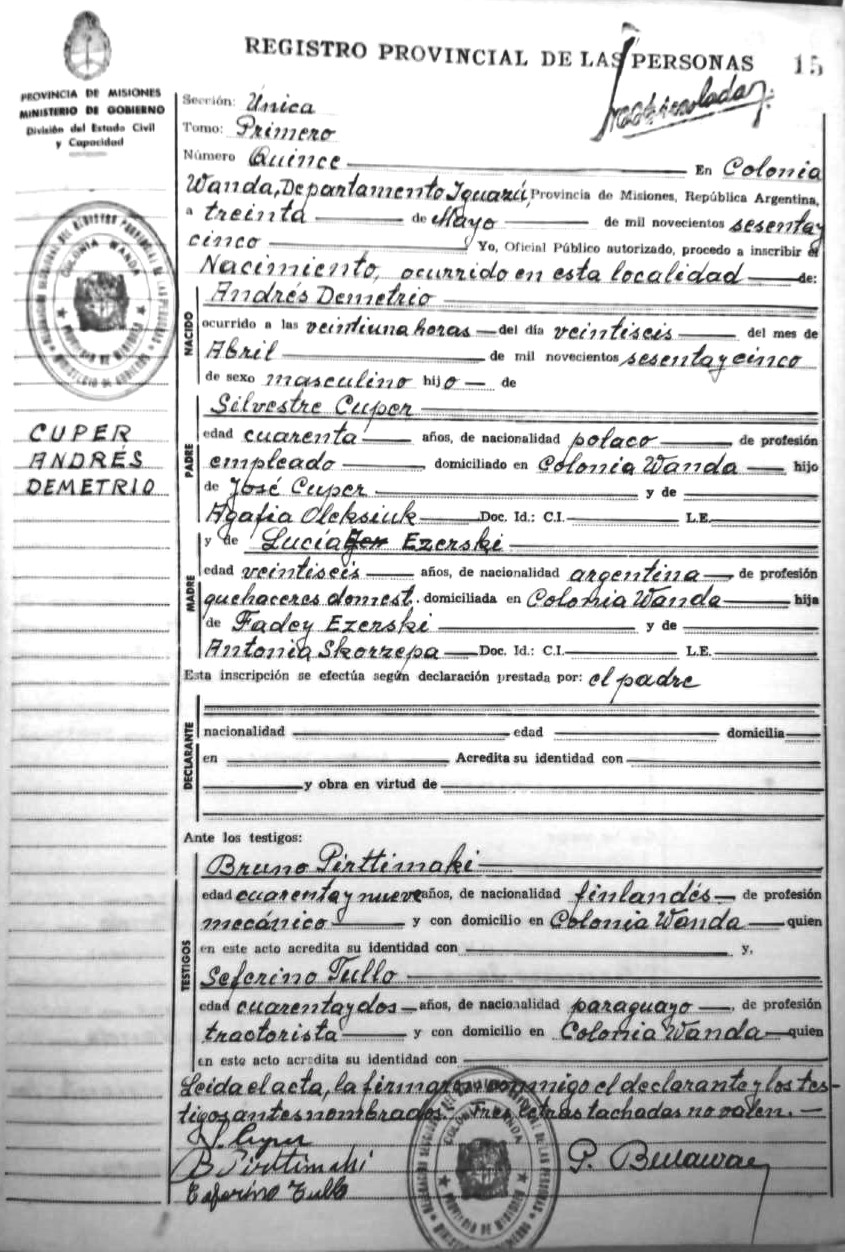 REGISTRO PROVINCIAL DE LAS PERSONAS 15
PROVINCIA DE MISIONES
MINISTERIO DE GOBIERNO
División del Estado Civil
y Capacidad
Sección: Única
Tomo: Primero
Número Quince En Colonia
Wanda, Departamento Iguazú, Provincia de Misiones, República Argentina,
a treinta de Mayo de mil novecientos sesenta y
cinco Yo, Oficial Público autorizado, procedo a inscribir el
Nacimiento, ocurrido en esta localidad de:
NACIDO
Andrés Demetrio
ocurrido a las veintiuna horas del día veintiseis del mes de
Abril de mil novecientos sesenta y cinco
de sexo masculino hijo de
CUPER
ANDRÉS
DEMETRIO
PADRE
Silvestre Cuper
edad cuarenta años, de nacionalidad polaco de profesión
empleado domiciliado en Colonia Wanda hijo
de José Cuper y de
Agafia Oleksiuk Doc. Id.: C.I. L.E.
MADRE
y de Lucía Jer Ezerski
edad veintiseis años, de nacionalidad argentina de profesión
quehaceres domest. domiciliada en Colonia Wanda hija
de Fadey Ezerski y de
Antonia Skorzepa Doc. Id.: C.I. L.E.
Esta inscripción se efectúa según declaración prestada por: el padre
DECLARANTE
nacionalidad edad domicilia
en Acredita su identidad con
y obra en virtud de
Ante los testigos:
TESTIGOS
Bruno Pirttimaki
edad cuarenta y nueve años, de nacionalidad finlandés de profesión
mecánico y con domicilio en Colonia Wanda quien
en este acto acredita su identidad con y,
Seferino Tullo
edad cuarenta y dos años, de nacionalidad paraguayo, de profesión
tractorista y con domicilio en Colonia Wanda quien
en este acto acredita su identidad con
Leida el acta, la firmaron conmigo el declarante y los tes-
tigos antes nombrados.- Tres letras tachadas no valen.-
B Pirttimaki
Ceferino Tullo
COLONIA WANDA
PROVINCIA DE MISIONES
COLONIA WANDA
PROVINCIA DE MISIONES